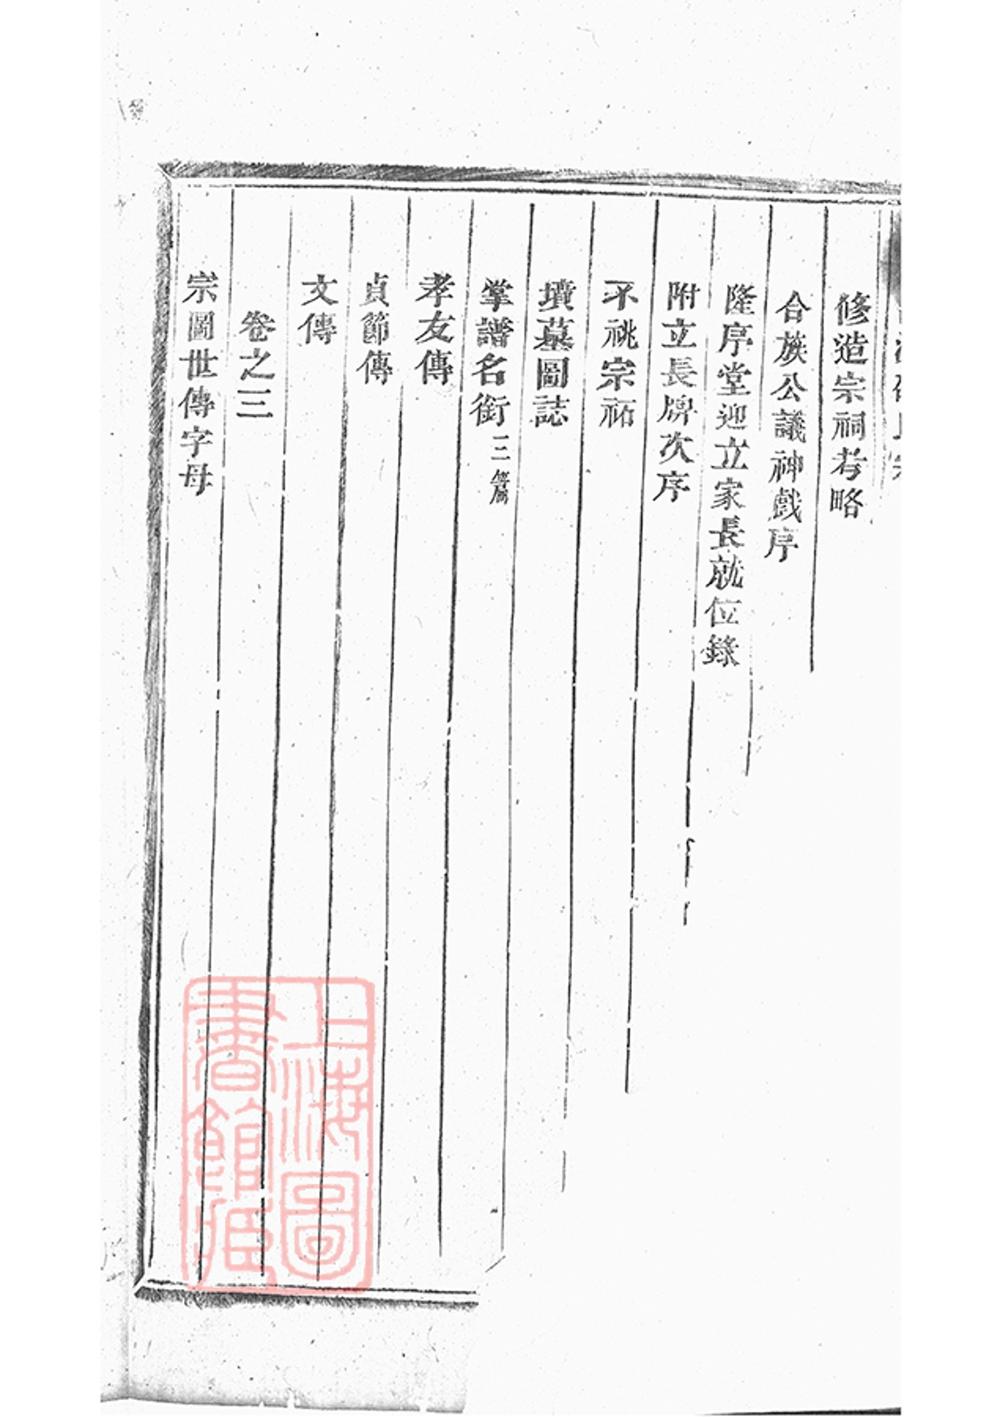 修造宗祠考略
合族公議神戲序
隆序堂迎立家長就位錄
附立長牌次序
不祧宗祏
墳墓圖誌
掌譜名銜三篇
孝友傳
貞節傳
文傳
卷之三
宗圖世傳字母
上海圖書館藏